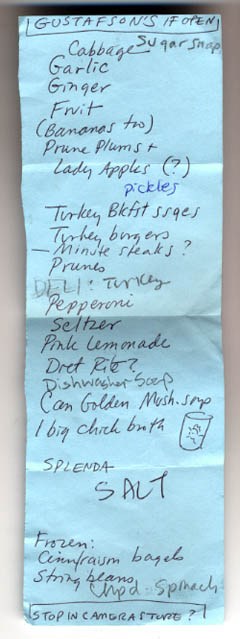 GUSTAFSON'S IF OPEN
Cabbage Sugar snap
Garlic
Ginger
Fruit
(Bananas too)
Prune Plums +
Lady Apples (?)
pickles
Turkey Bkfst ssges
Turkey burgers
— Minute steaks ?
Prunes
DELI: Turkey
Pepperoni
Seltzer
Pink Lemonade
Diet Rite?
Dishwasher Soap
Can Golden Mush. soup
1 big chick broth
SPLENDA
SALT
Frozen:
Cinn/raisin bagels
String beans
Chpd. Spinach
STOP IN CAMERA STORE?